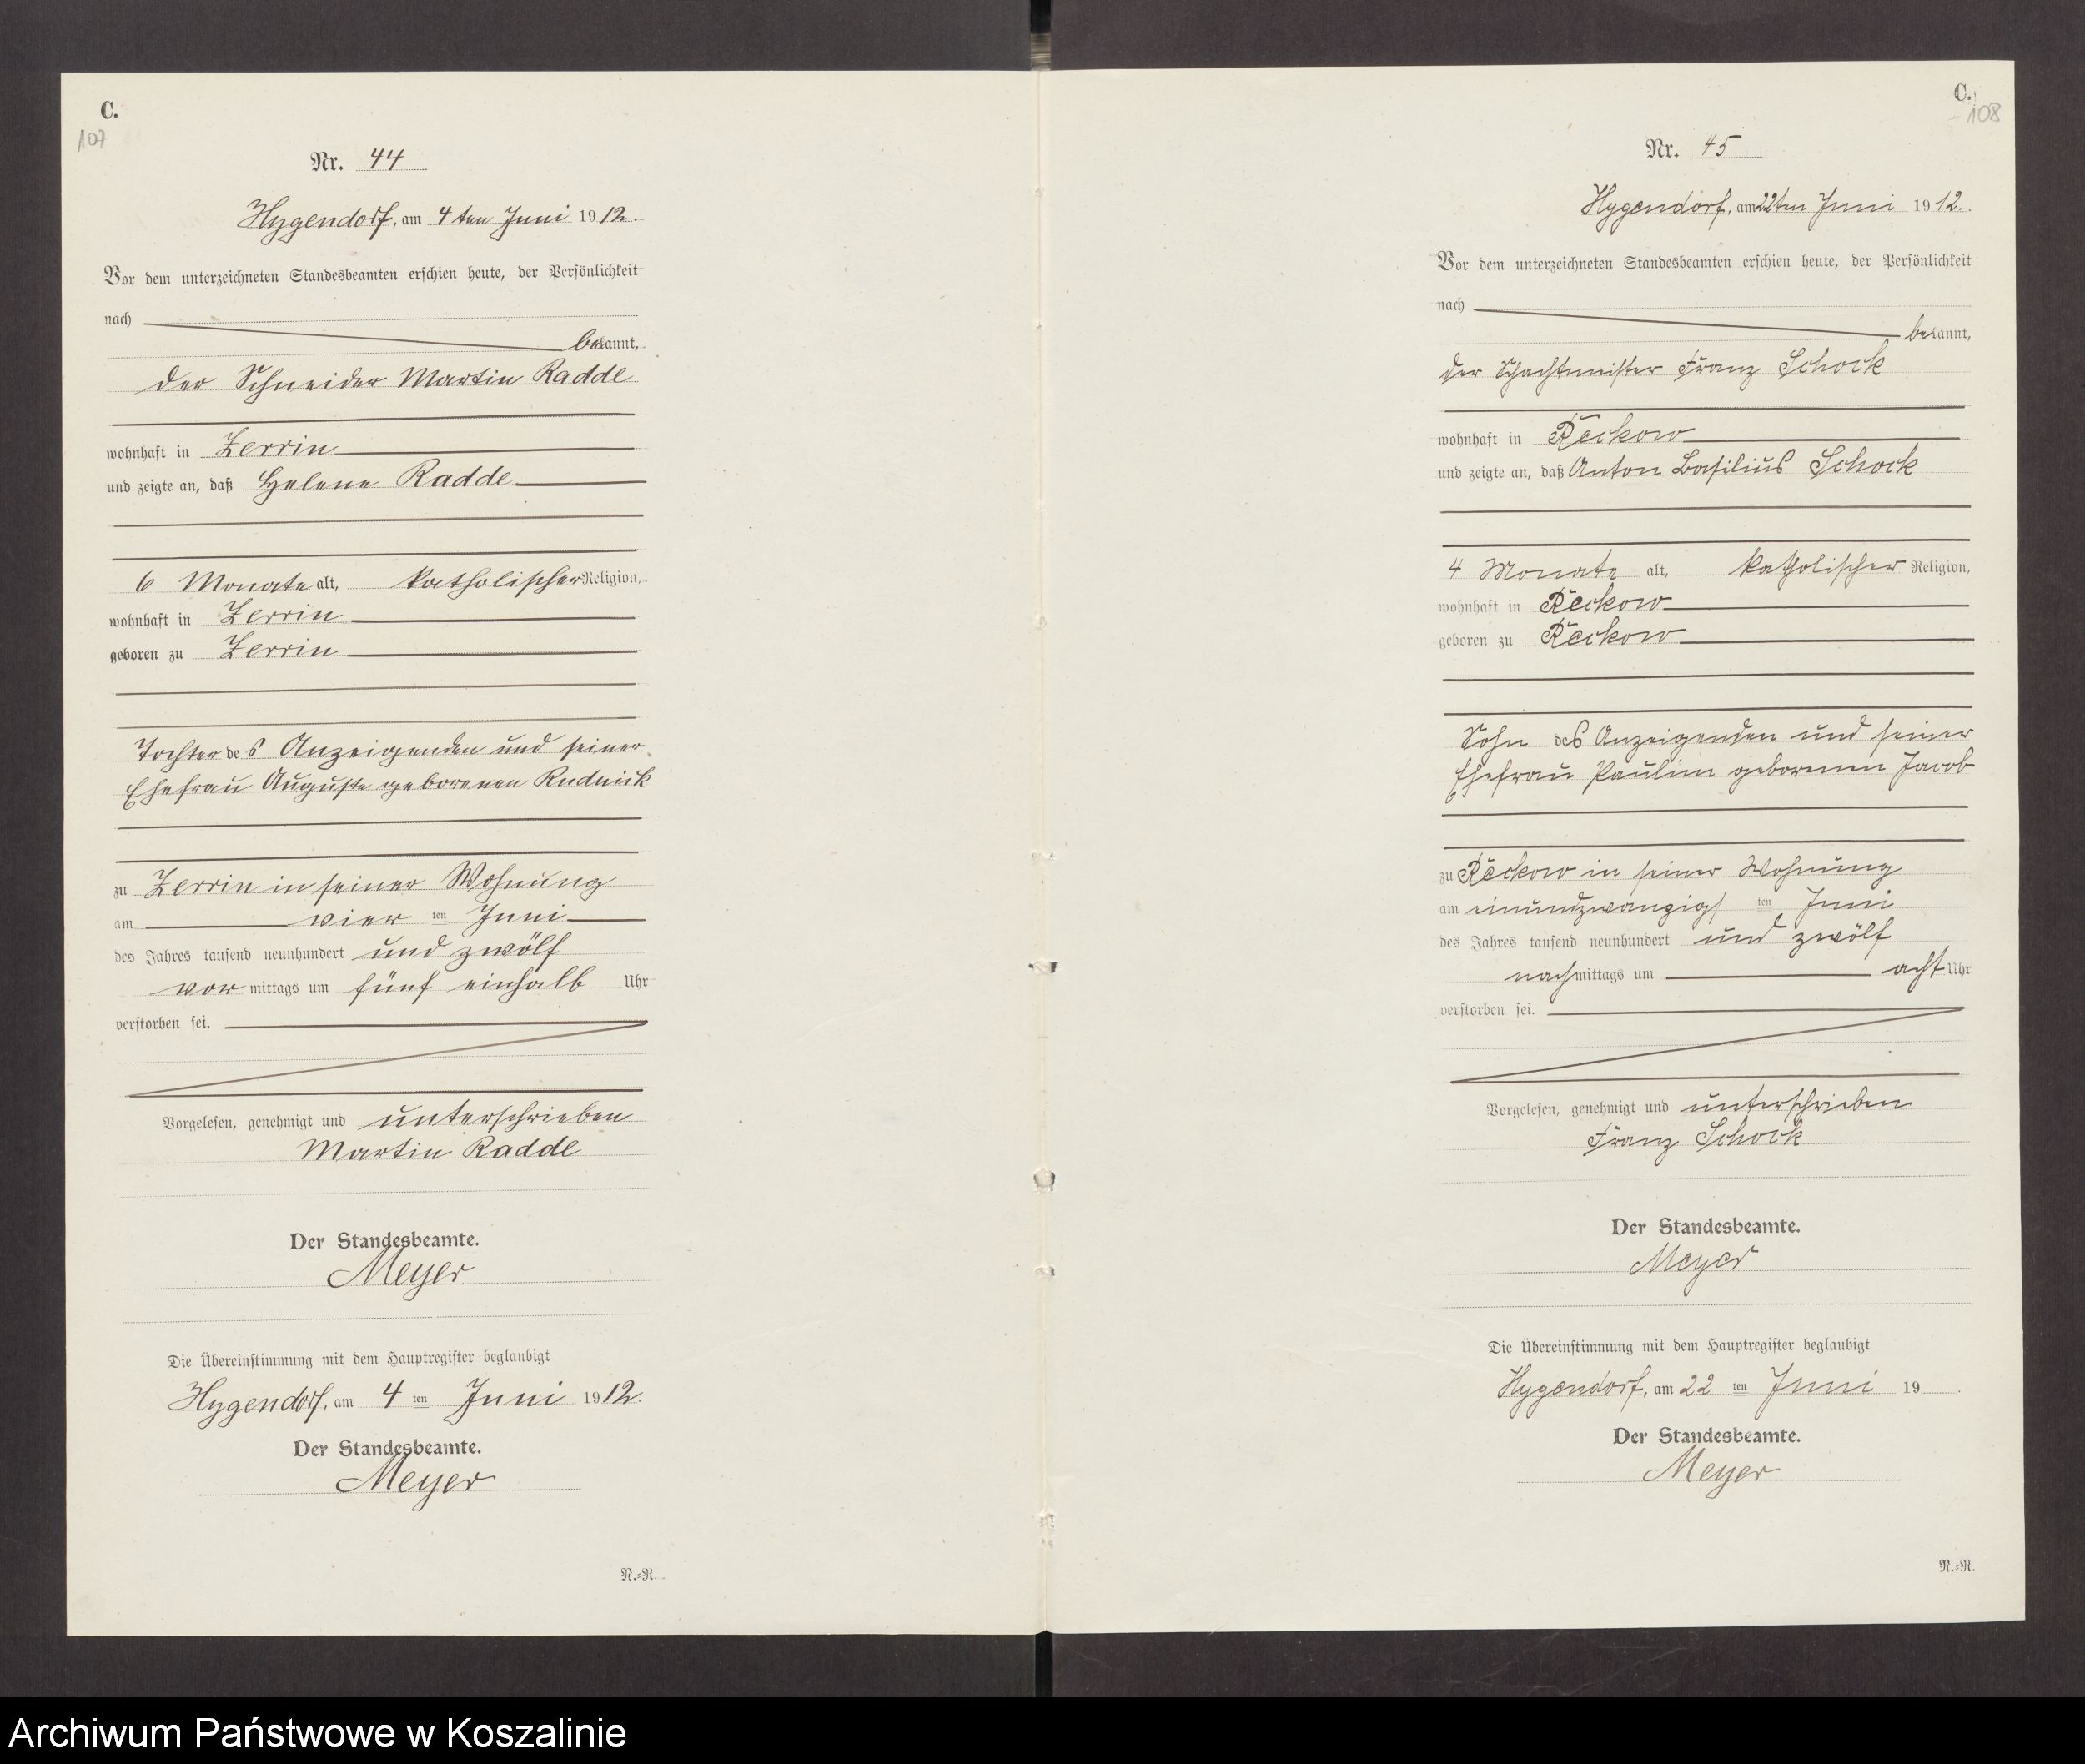 C.
107
Nr. 44
Hygendorf, am 4 ten Juni 1912.
Vor dem unterzeichneten Standesbeamten erschien heute, der Persönlichkeit
nach
bekannt,
der Schneider Martin Radde
wohnhaft in Zerrin
und zeigte an, daß Helene Radde
6 Monate alt, katholischer Religion,
wohnhaft in Zerrin
geboren zu Zerrin
Tochter des Anzeigenden und seiner
Ehefrau Auguste geborenen Rudnick
zu Zerrin in seiner Wohnung
am vier ten Juni
des Jahres tausend neunhundert und zwölf
vor mittags um fünf einhalb Uhr
verstorben sei.
Vorgelesen, genehmigt und unterschrieben
Martin Radde
Der Standesbeamte.
Meyer
Die Übereinstimmung mit dem Hauptregister beglaubigt
Hygendorf, am 4 ten Juni 1912.
Der Standesbeamte.
Meyer
N.=N.
C.
108
Nr. 45
Hygendorf, am 22ten Juni 1912.
Vor dem unterzeichneten Standesbeamten erschien heute, der Persönlichkeit
nach
bekannt,
der Schachtmeister Franz Schock
wohnhaft in Reckow
und zeigte an, daß Anton Basilius Schock
4 Monate alt, katholischer Religion,
wohnhaft in Reckow
geboren zu Reckow
Sohn des Anzeigenden und seiner
Ehefrau Pauline geborenen Jacob
zu Reckow in seiner Wohnung
am einundzwanzigs ten Juni
des Jahres tausend neunhundert und zwölf
nachmittags um acht Uhr
verstorben sei.
Vorgelesen, genehmigt und unterschrieben
Franz Schock
Der Standesbeamte.
Meyer
Die Übereinstimmung mit dem Hauptregister beglaubigt
Hygendorf, am 22 ten Juni 19 .
Der Standesbeamte.
Meyer
N.=N.
Archiwum Państwowe w Koszalinie